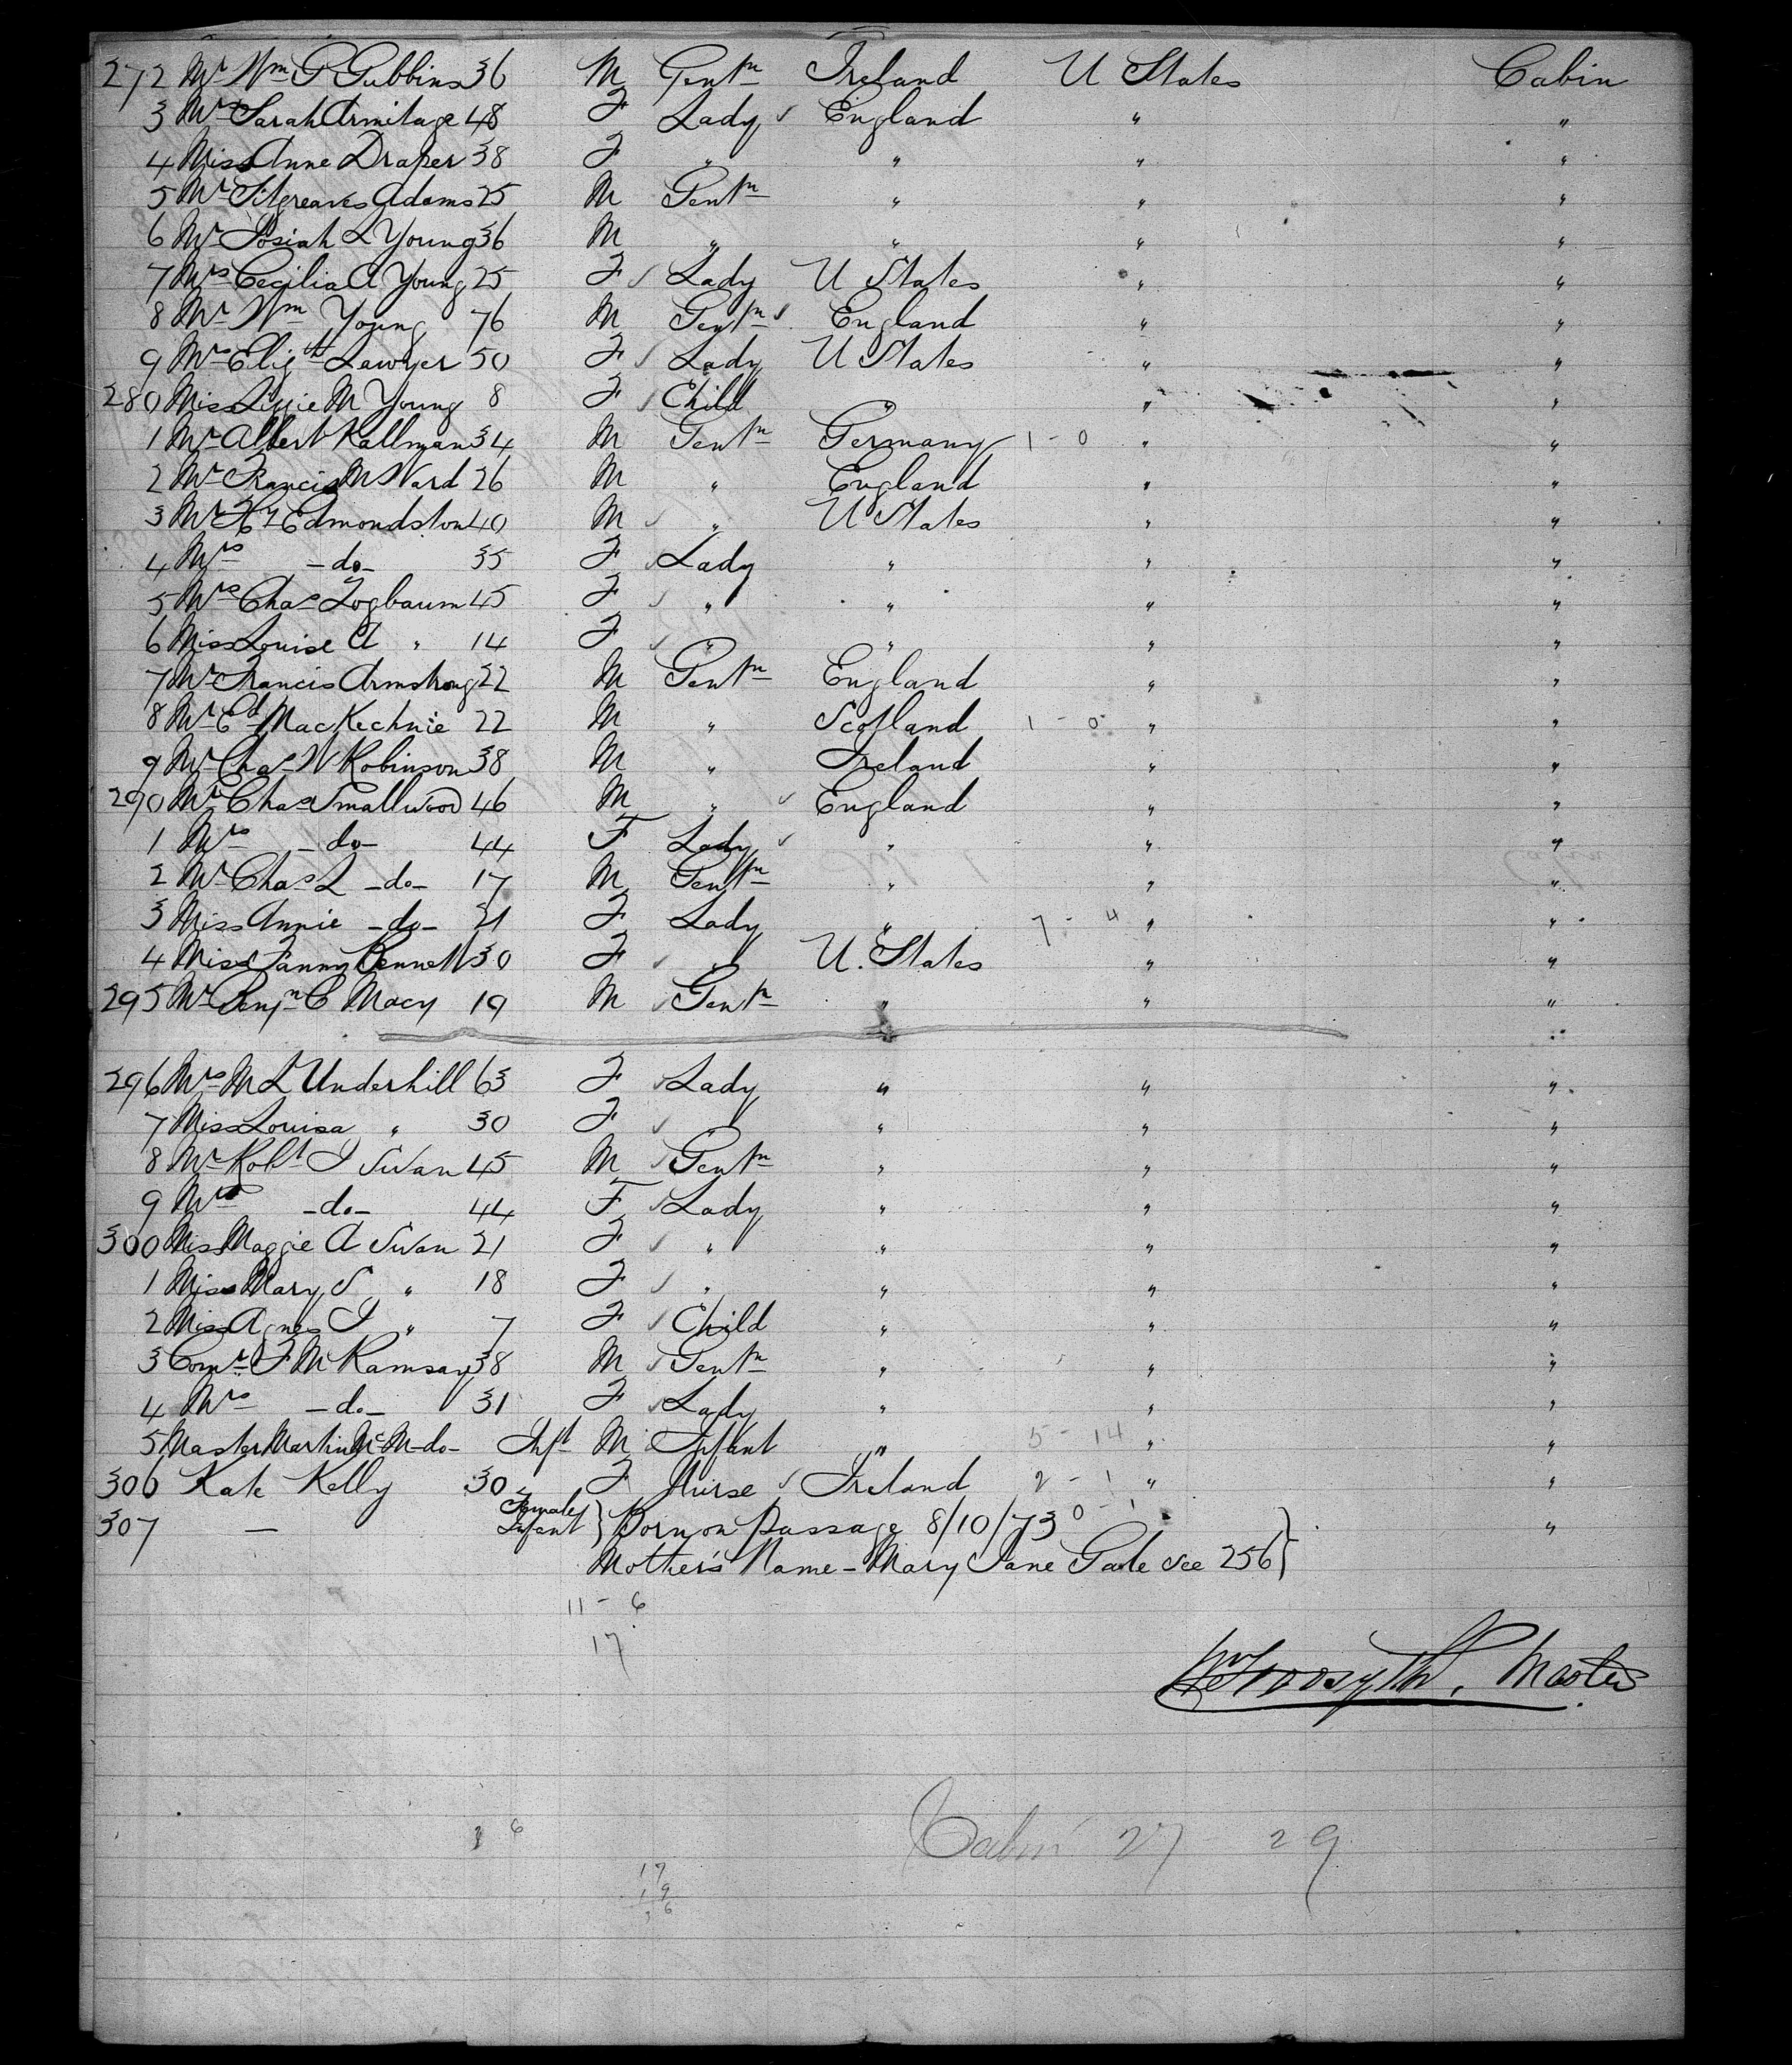 272 Mr Wm P Gubbins 36 M Gentn Ireland U States Cabin
3 Mrs Sarah Armitage 48 F Lady England " "
4 Miss Anne Draper 38 F " " " "
5 Mr Sitgreaves Adams 25 M Gentn " " "
6 Mr Josiah L Young 36 M " " " "
7 Mrs Cecilia A Young 25 F Lady U States " "
8 Mr Wm Young 76 M Gentn England " "
9 Mrs Elizth Lawyer 50 F Lady U States " "
280 Miss Lizzie M Young 8 F Child " " "
1 Mr Albert Kallman 34 M Gentn Germany 1 - 0 " "
2 Mr Francis M Ward 26 M " England " "
3 Mr Hy Edmondston 40 M " U States " "
4 Mrs -do- 35 F Lady " " "
5 Mrs Chas Zogbaum 45 F " " " "
6 Miss Louise A " 14 F " " " "
7 Mr Francis Armstrong 22 M Gentn England " "
8 Mr Ed MacKechnie 22 M " Scotland 1 - 0 " "
9 Mr Chas W Robinson 38 M " Ireland " "
290 Mr Chas Smallwood 46 M " England " "
1 Mrs -do- 44 F Lady " " "
2 Mr Chas L -do- 17 M Gentn " " "
3 Miss Annie -do- 21 F Lady " 7 - 4 " "
4 Miss Fanny Bennett 30 F " U. States " "
295 Mr Benjn C Macy 19 M Gentn " " "
296 Mrs M L Underhill 63 F Lady " " "
7 Miss Louisa " 30 F " " " "
8 Mr Robt J Swan 45 M Gentn " " "
9 Mrs -do- 44 F Lady " " "
300 Miss Maggie A Swan 21 F " " " "
1 Miss Mary S " 18 F " " " "
2 Miss Agnes J " 7 F Child " " "
3 Comr F M Ramsay 38 M Gentn " " "
4 Mrs -do- 31 F Lady " " "
5 Master Martin McM -do- Inft M Infant " 5 - 14 " "
306 Kate Kelly 30 F Nurse Ireland 2 - 1 " "
307 — Female Infant } Born on Passage 8/10/73 0 - 1 } "
Mother's Name - Mary Jane Gale see 256 }
11 - 6
17
Wm Forsyth, Master
Cabin 27 29
17
19
36